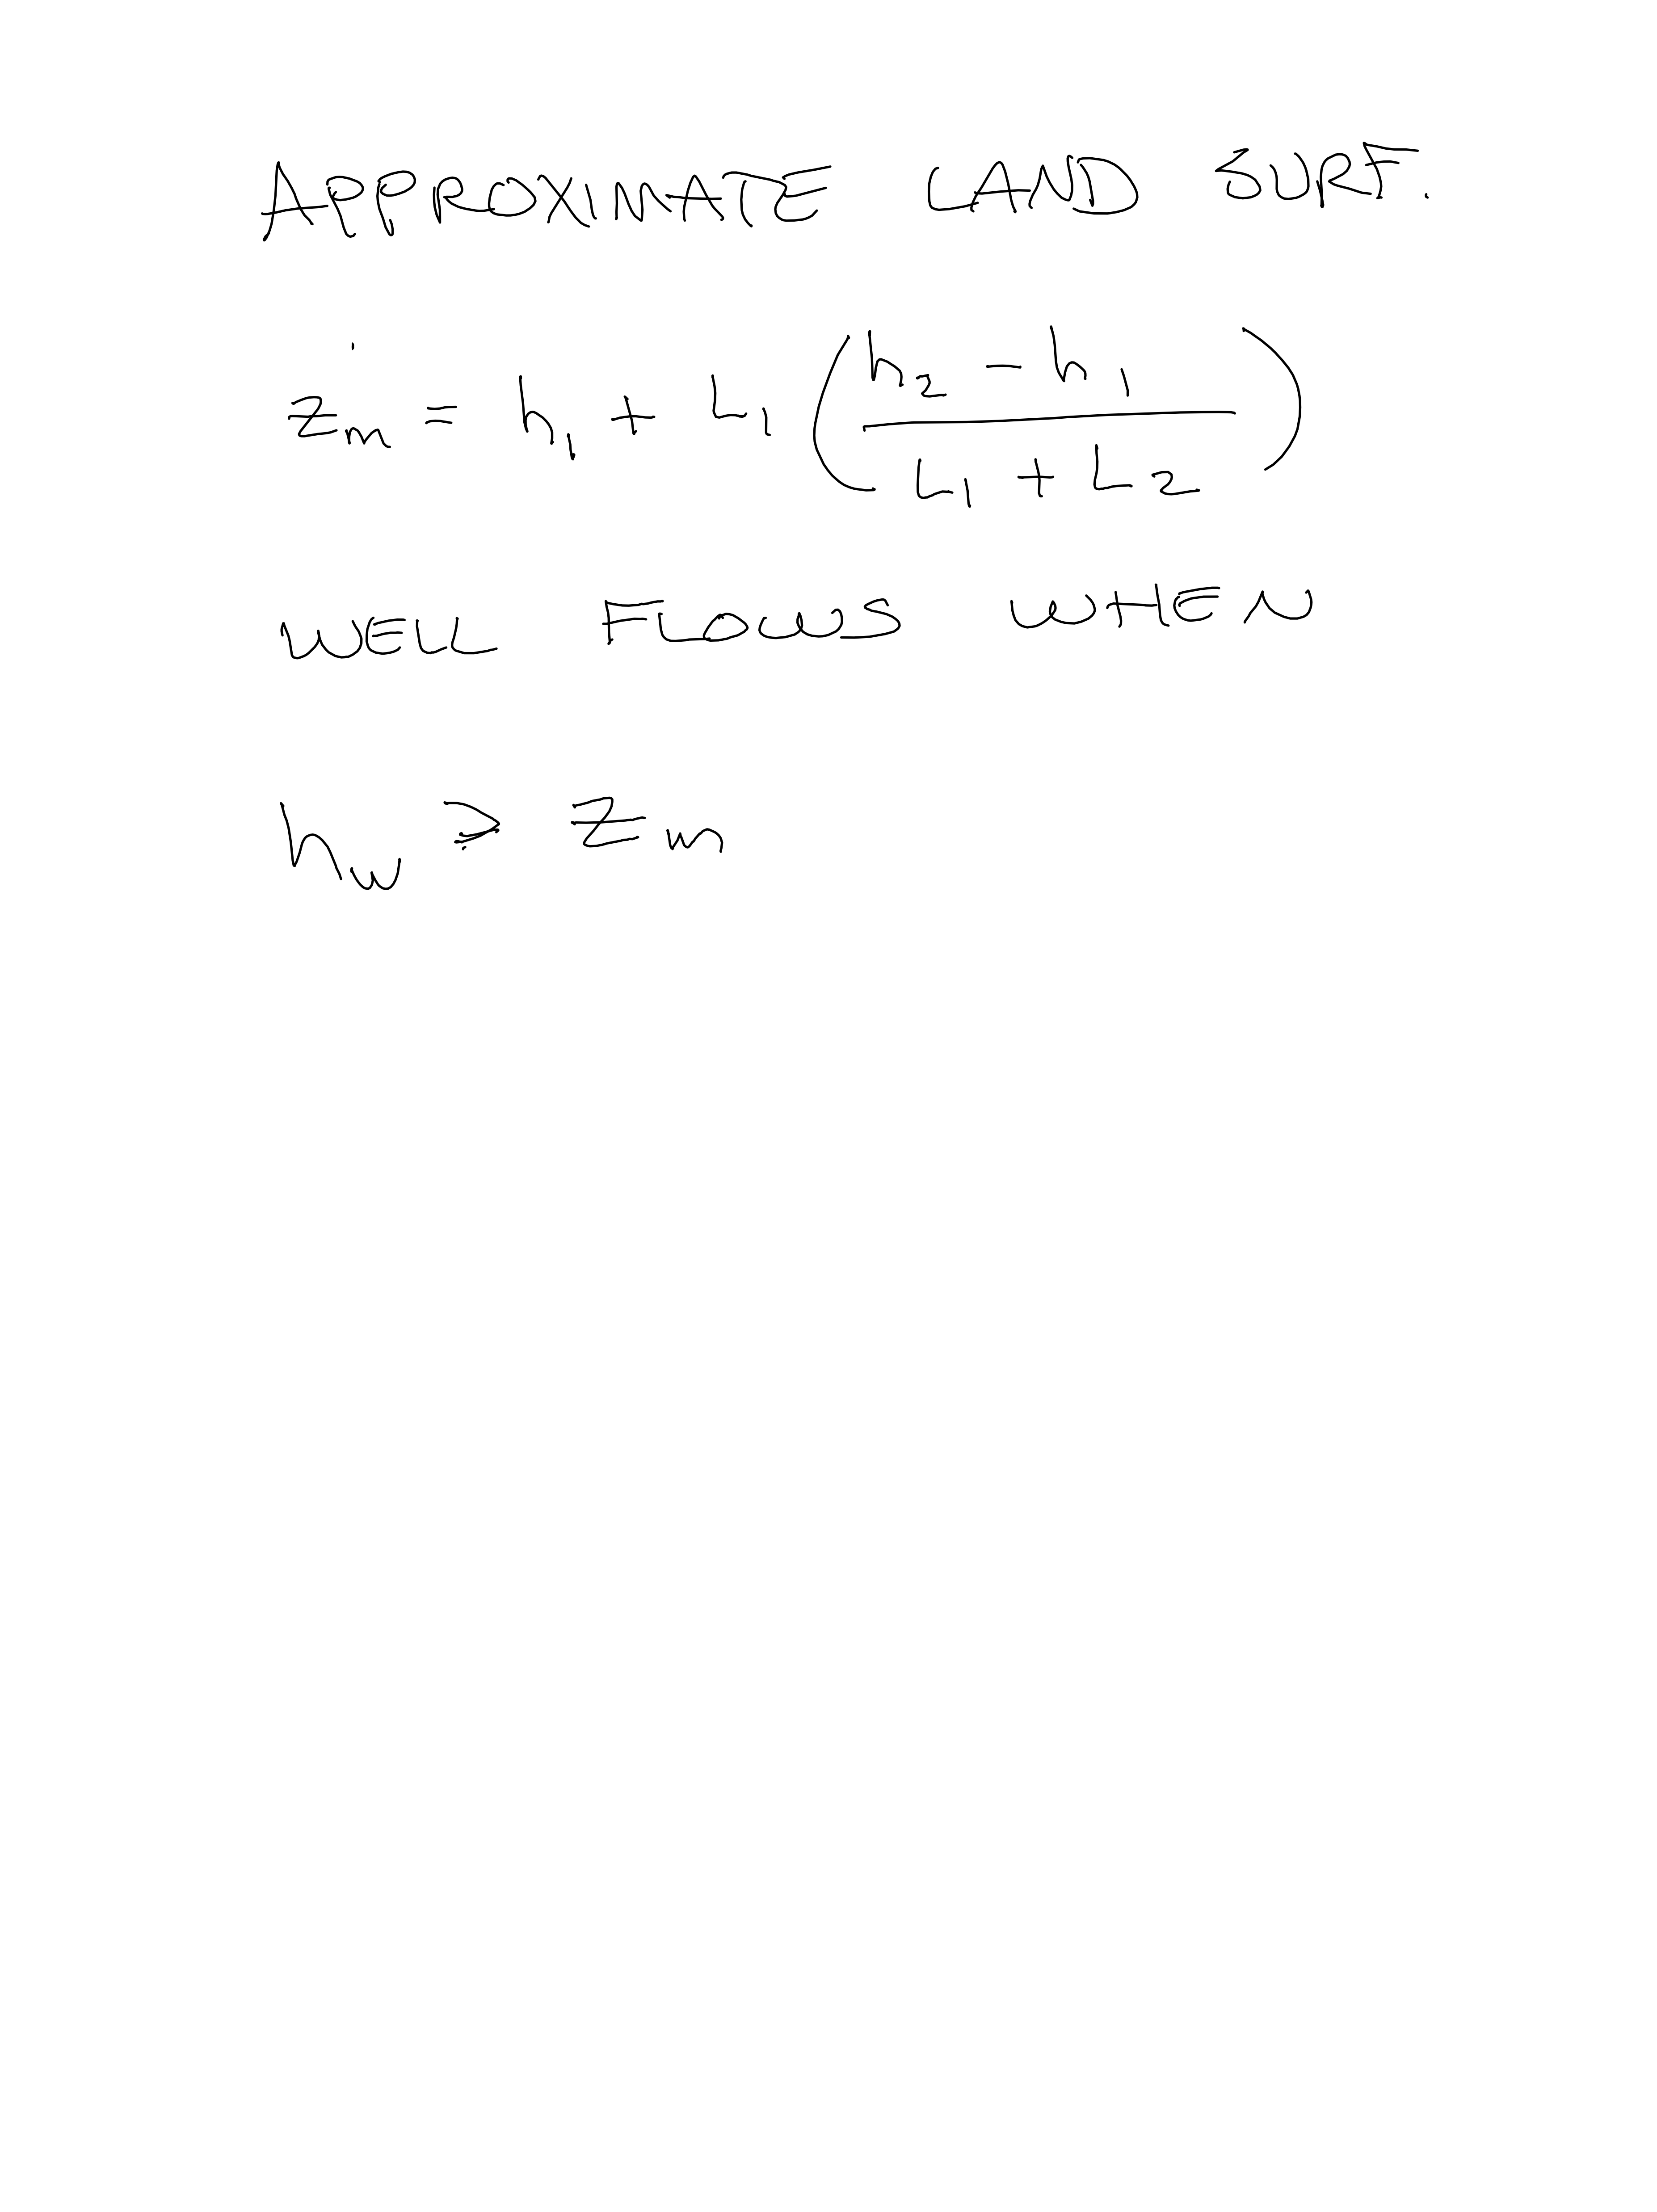 APPROXIMATE LAND SURF.
z_m = h_1 + L_1 ( (h_2 - h_1) / (L_1 + L_2) )
WELL FLOWS WHEN
h_w ≥ z_m